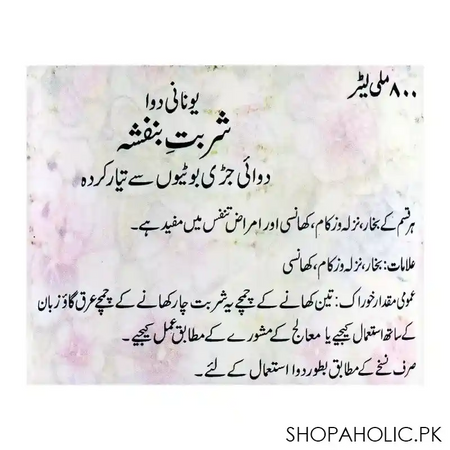 ۸۰۰ ملی لیٹر
یونانی دوا
شربتِ بنفشہ
دوائی جڑی بوٹیوں سے تیار کردہ
ہر قسم کے بخار، نزلہ و زکام، کھانسی اور امراض تنفس میں مفید ہے۔
علامات: بخار، نزلہ و زکام، کھانسی
عمومی مقدار خوراک: تین کھانے کے چمچے یہ شربت چار کھانے کے چمچے عرق گاؤ زبان
کے ساتھ استعمال کیجیے یا معالج کے مشورے کے مطابق عمل کیجیے۔
صرف نسخے کے مطابق بطور دوا استعمال کے لئے۔
SHOPAHOLIC.PK